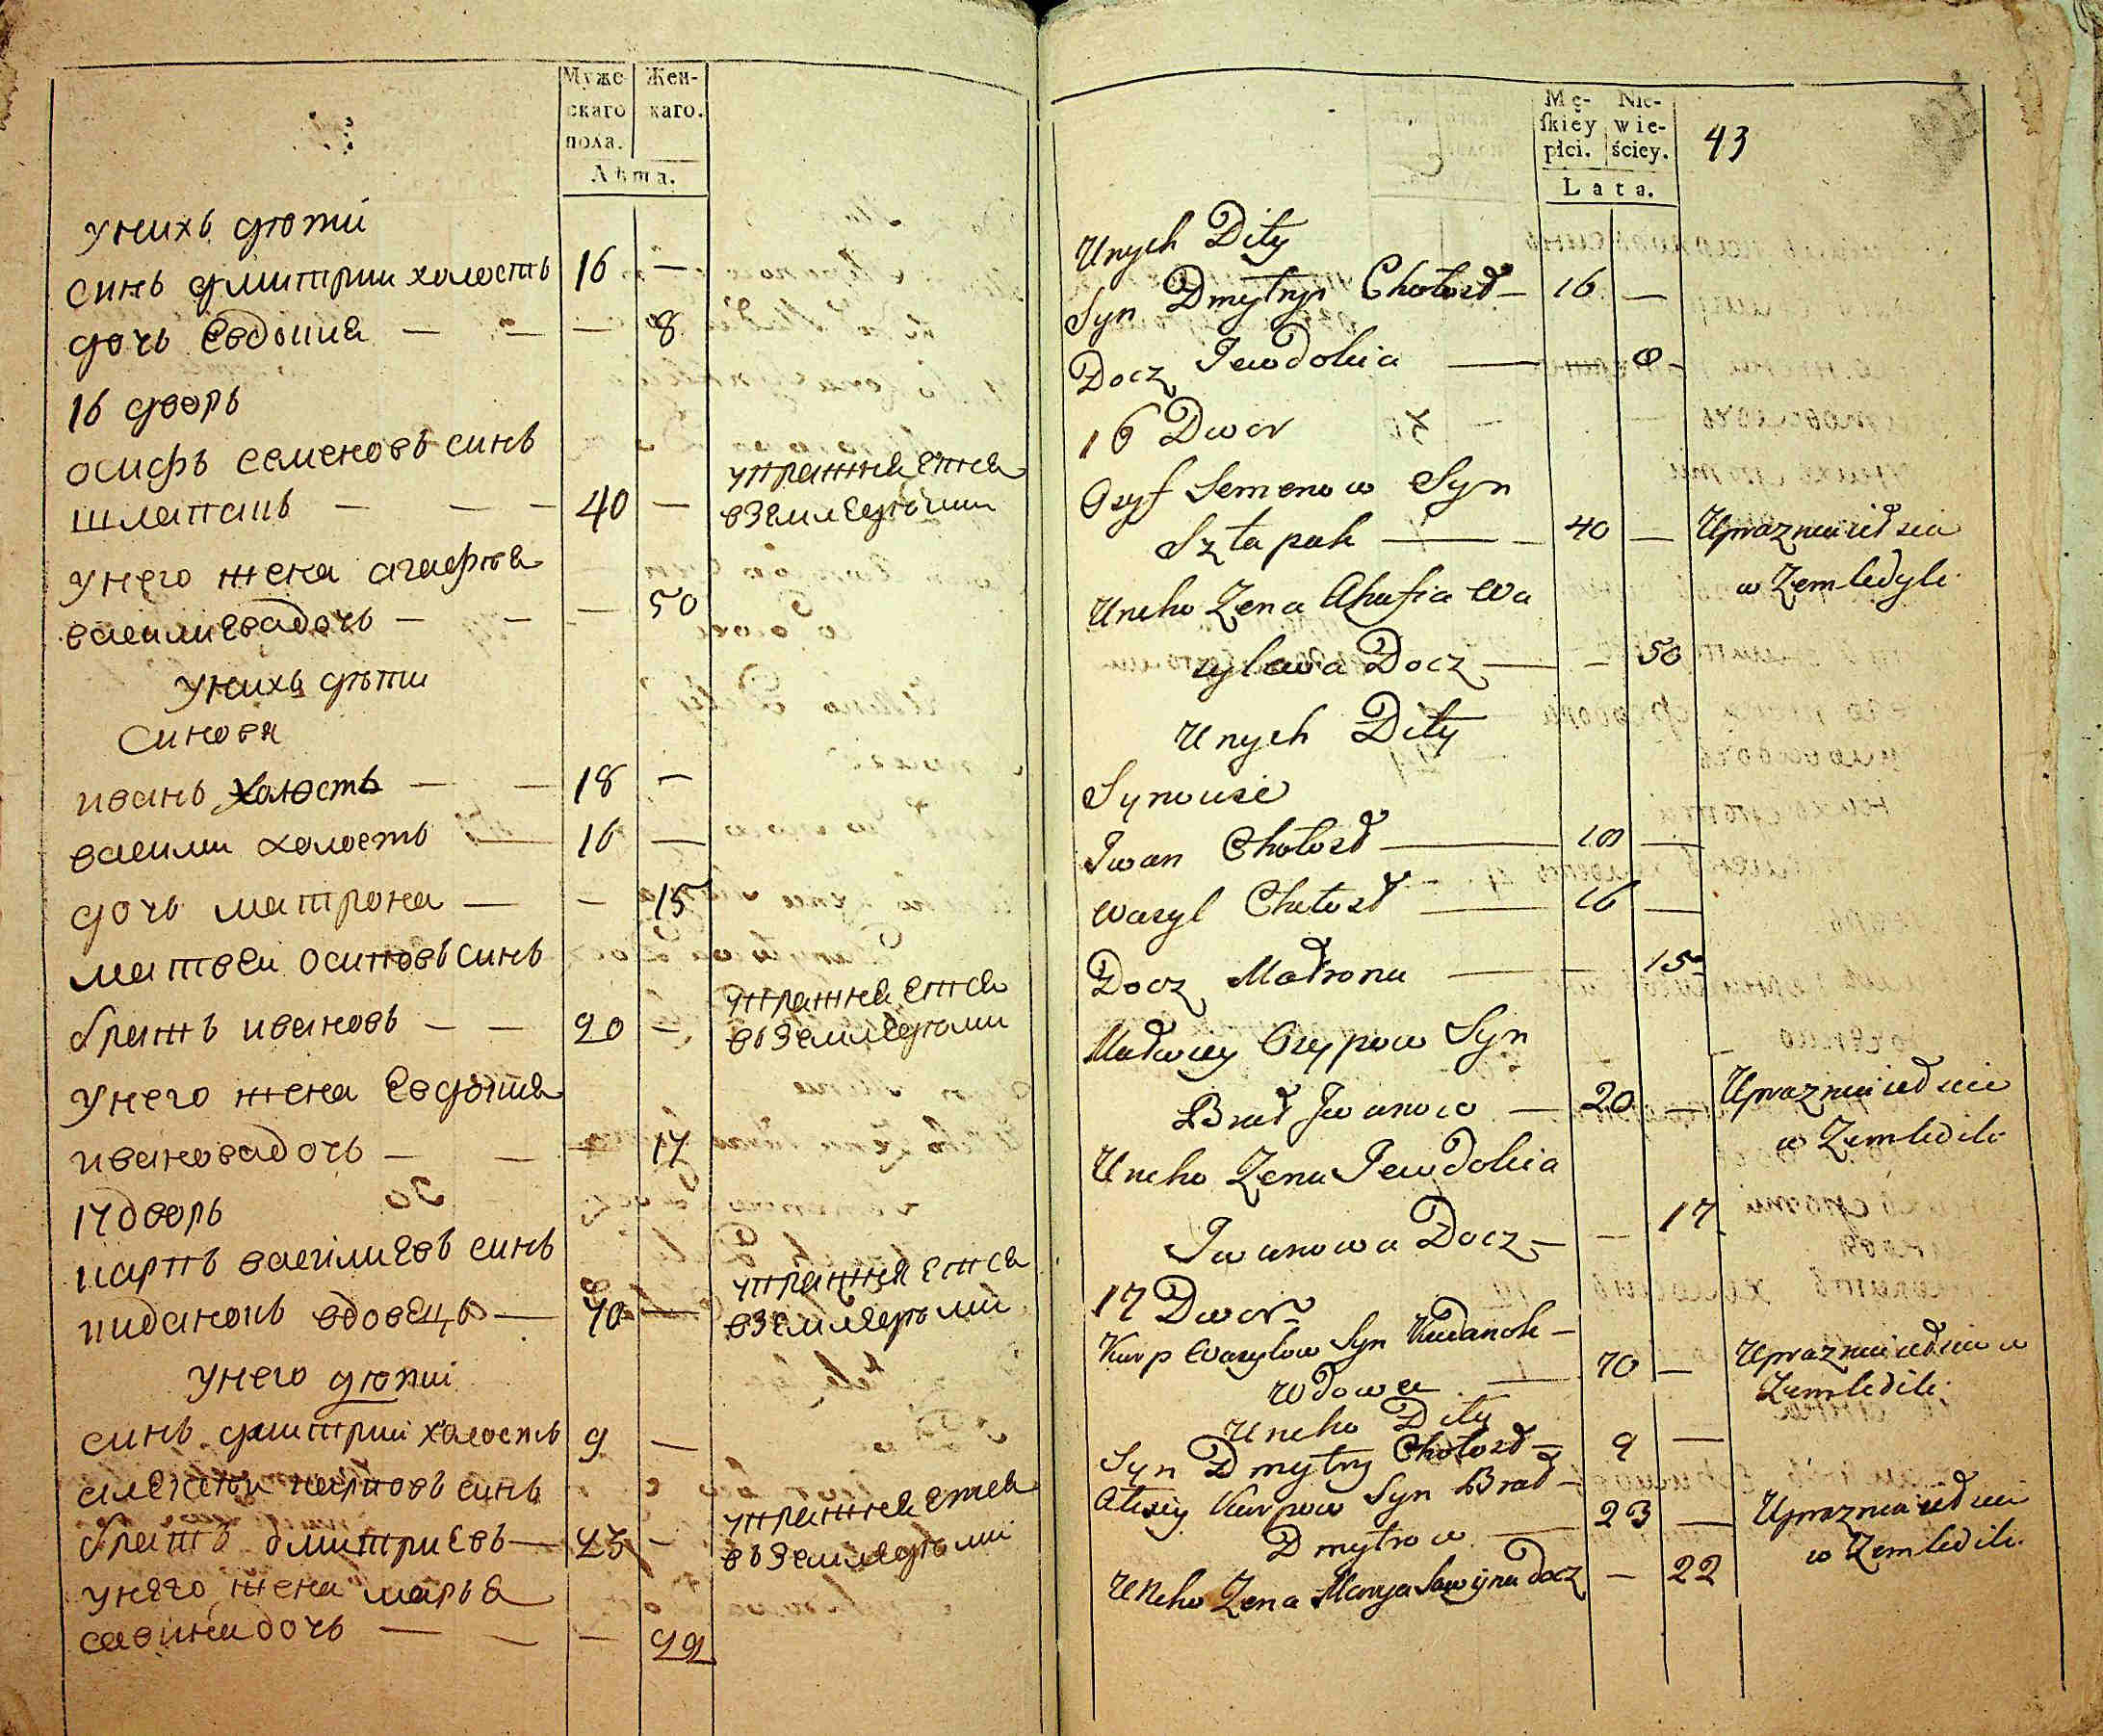 Муже- Жен-
скаго каго.
пола.
Лѣта.
унихъ дѣти
синь дмитрии холость 16 —
дочь Евдокиа — — — 8
16 дворъ
осифъ семеновъ синь
шлапакъ — — — 40 — упражнаетса
вземледѣлии
унего жена агафиа
василиева дочь — — — 50
унихъ дѣти
синовя
иванъ холость — — 18 —
василии холость — 16 —
дочь матрона — — 15
матвеи осиповъ синь
братъ ивановъ — — 20 — упражнаетса
въземледѣлии
унего жена Евдокиа
иванова дочь — — — 17
17 дворъ
карпъ василиевъ синь
киданокъ вдовецъ — 70 — упражняетса
вземледѣлии
унего дѣти
синь дмитрии холость 9 —
алексѣи карповъ синь
братъ дмитриевъ — 23 — упражняетса
въземледѣлии
унего жена марьа
савина дочь — — — 22
Mę- Nie-
skiey wie-
płci. ściey.
Lata.
43
Unych Dity
Syn Dmytryi Chołost — 16 —
Docz Jewdokia — — 8 —
16 Dwor
Osyf Semenow Syn
Szłapak — — 40 — Uprazniaietsia
w Zemledyli
Uneho Zena Ahafia Wa
sylowa Docz — — 50
Unych Dity
Synowie
Iwan Chołost — 18 —
Wasyl Chołost — 16 —
Docz Matrona — — 15
Matwiey Osypow Syn
Brat Iwanow — 20 — Uprazniaietsia
w Zemledili
Uneho Zena Jewdokia
Iwanowa Docz — — 17
17 Dwor
Karp Wasylow Syn Kudanok —
Wdowec — 70 — Uprazniaietsia w
Zemledili
Uneho Dity
Syn Dmytry Chołost — 9 —
Alexiy Karpow Syn Brat —
Dmytrow — 23 — Uprazniaietsia
w Zemledili
Uneho Zena Marya Sawina Docz — 22